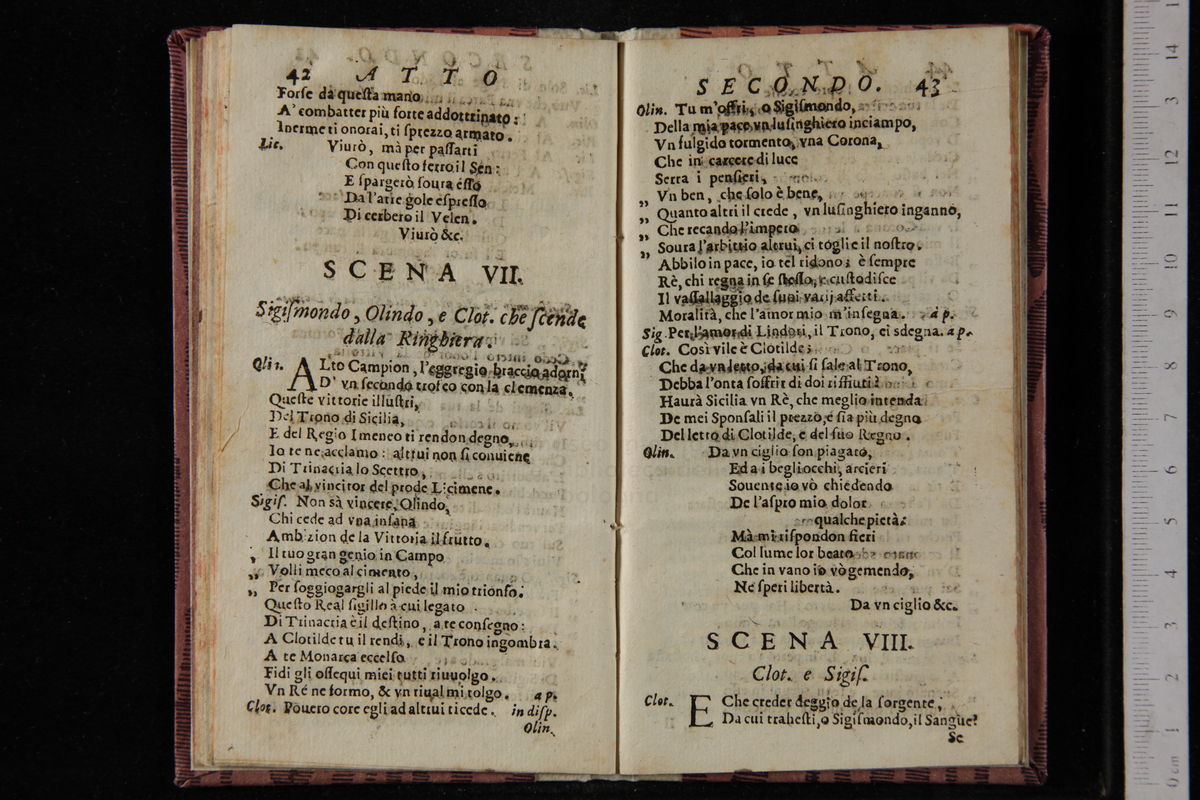 42 ATTO
Forſe da queſta mano
A' combatter più forte addottrinato:
Inerme ti onorai, ti ſprezzo armato.
Lic. Viurò, mà per paſſarti
Con queſto ferro il Sen:
E ſpargerò ſoura eſſo
Da l'atre gole eſpreſſo
Di cerbero il Velen.
Viurò &c.
SCENA VII.
Sigiſmondo, Olindo, e Clot. che ſcende
dalla Ringhiera.
Olin. ALto Campion, l'eggregio braccio adorni
D' vn ſecondo trofeo con la clemenza.
Queſte vittorie illuſtri,
Del Trono di Sicilia,
E del Regio Imeneo ti rendon degno,
Io te ne acclamo: altrui non ſi conuiene
Di Trinacria lo Scettro,
Che al vincitor del prode Licimene.
Sigiſ. Non sà vincere, Olindo,
Chi cede ad vna inſana
Ambizion de la Vittoria il frutto.
„ Il tuo gran genio in Campo
„ Volli meco al cimento,
„ Per ſoggiogargli al piede il mio trionfo.
Queſto Real ſigillo à cui legato
Di Trinacria è il deſtino, a te conſegno:
A Clotilde tu il rendi, e il Trono ingombra.
A te Monarca eccelſo
Fidi gli oſſequi miei tutti riuuolgo.
Vn Ré ne formo, & vn riual mi tolgo. a p.
Clot. Pouero core egli ad altrui ti cede. in diſp.
Olin.
SECONDO. 43
Olin. Tu m'offri, o Sigiſmondo,
Della mia pace vn luſinghiero inciampo,
Vn fulgido tormento, vna Corona,
Che in carcere di luce
Serra i penſieri,
„ Vn ben, che ſolo è bene,
„ Quanto altri il crede, vn luſinghiero inganno,
„ Che recando l'impero
„ Soura l'arbitrio altrui, ci toglie il noſtro.
Abbilo in pace, io tel ridono; è ſempre
Rè, chi regna in ſe ſteſſo, e cuſtodiſce
Il vaſſallaggio de ſuoi varij affetti.
Moralità, che l'amor mio m'inſegna. a p.
Sig. Per l'amor di Lindori, il Trono, ei sdegna. a p.
Clot. Così vile è Clotilde;
Che da vn letto, da cui ſi ſale al Trono,
Debba l'onta ſoffrir di doi riffiuti?
Haurà Sicilia vn Rè, che meglio intenda
De mei Sponſali il prezzo, e ſia più degno
Del letto di Clotilde, e del ſuo Regno.
Olin. Da vn ciglio ſon piagato,
Ed a i begliocchi, arcieri
Souente io vò chiedendo
De l'aſpro mio dolor
qualche pietà:
Mà mi riſpondon fieri
Col lume lor beato
Che in vano io vò gemendo,
Ne ſperi libertà.
Da vn ciglio &c.
SCENA VIII.
Clot. e Sigiſ.
Clot. E Che creder deggio de la ſorgente,
Da cui traheſti, o Sigiſmondo, il Sangue?
Se